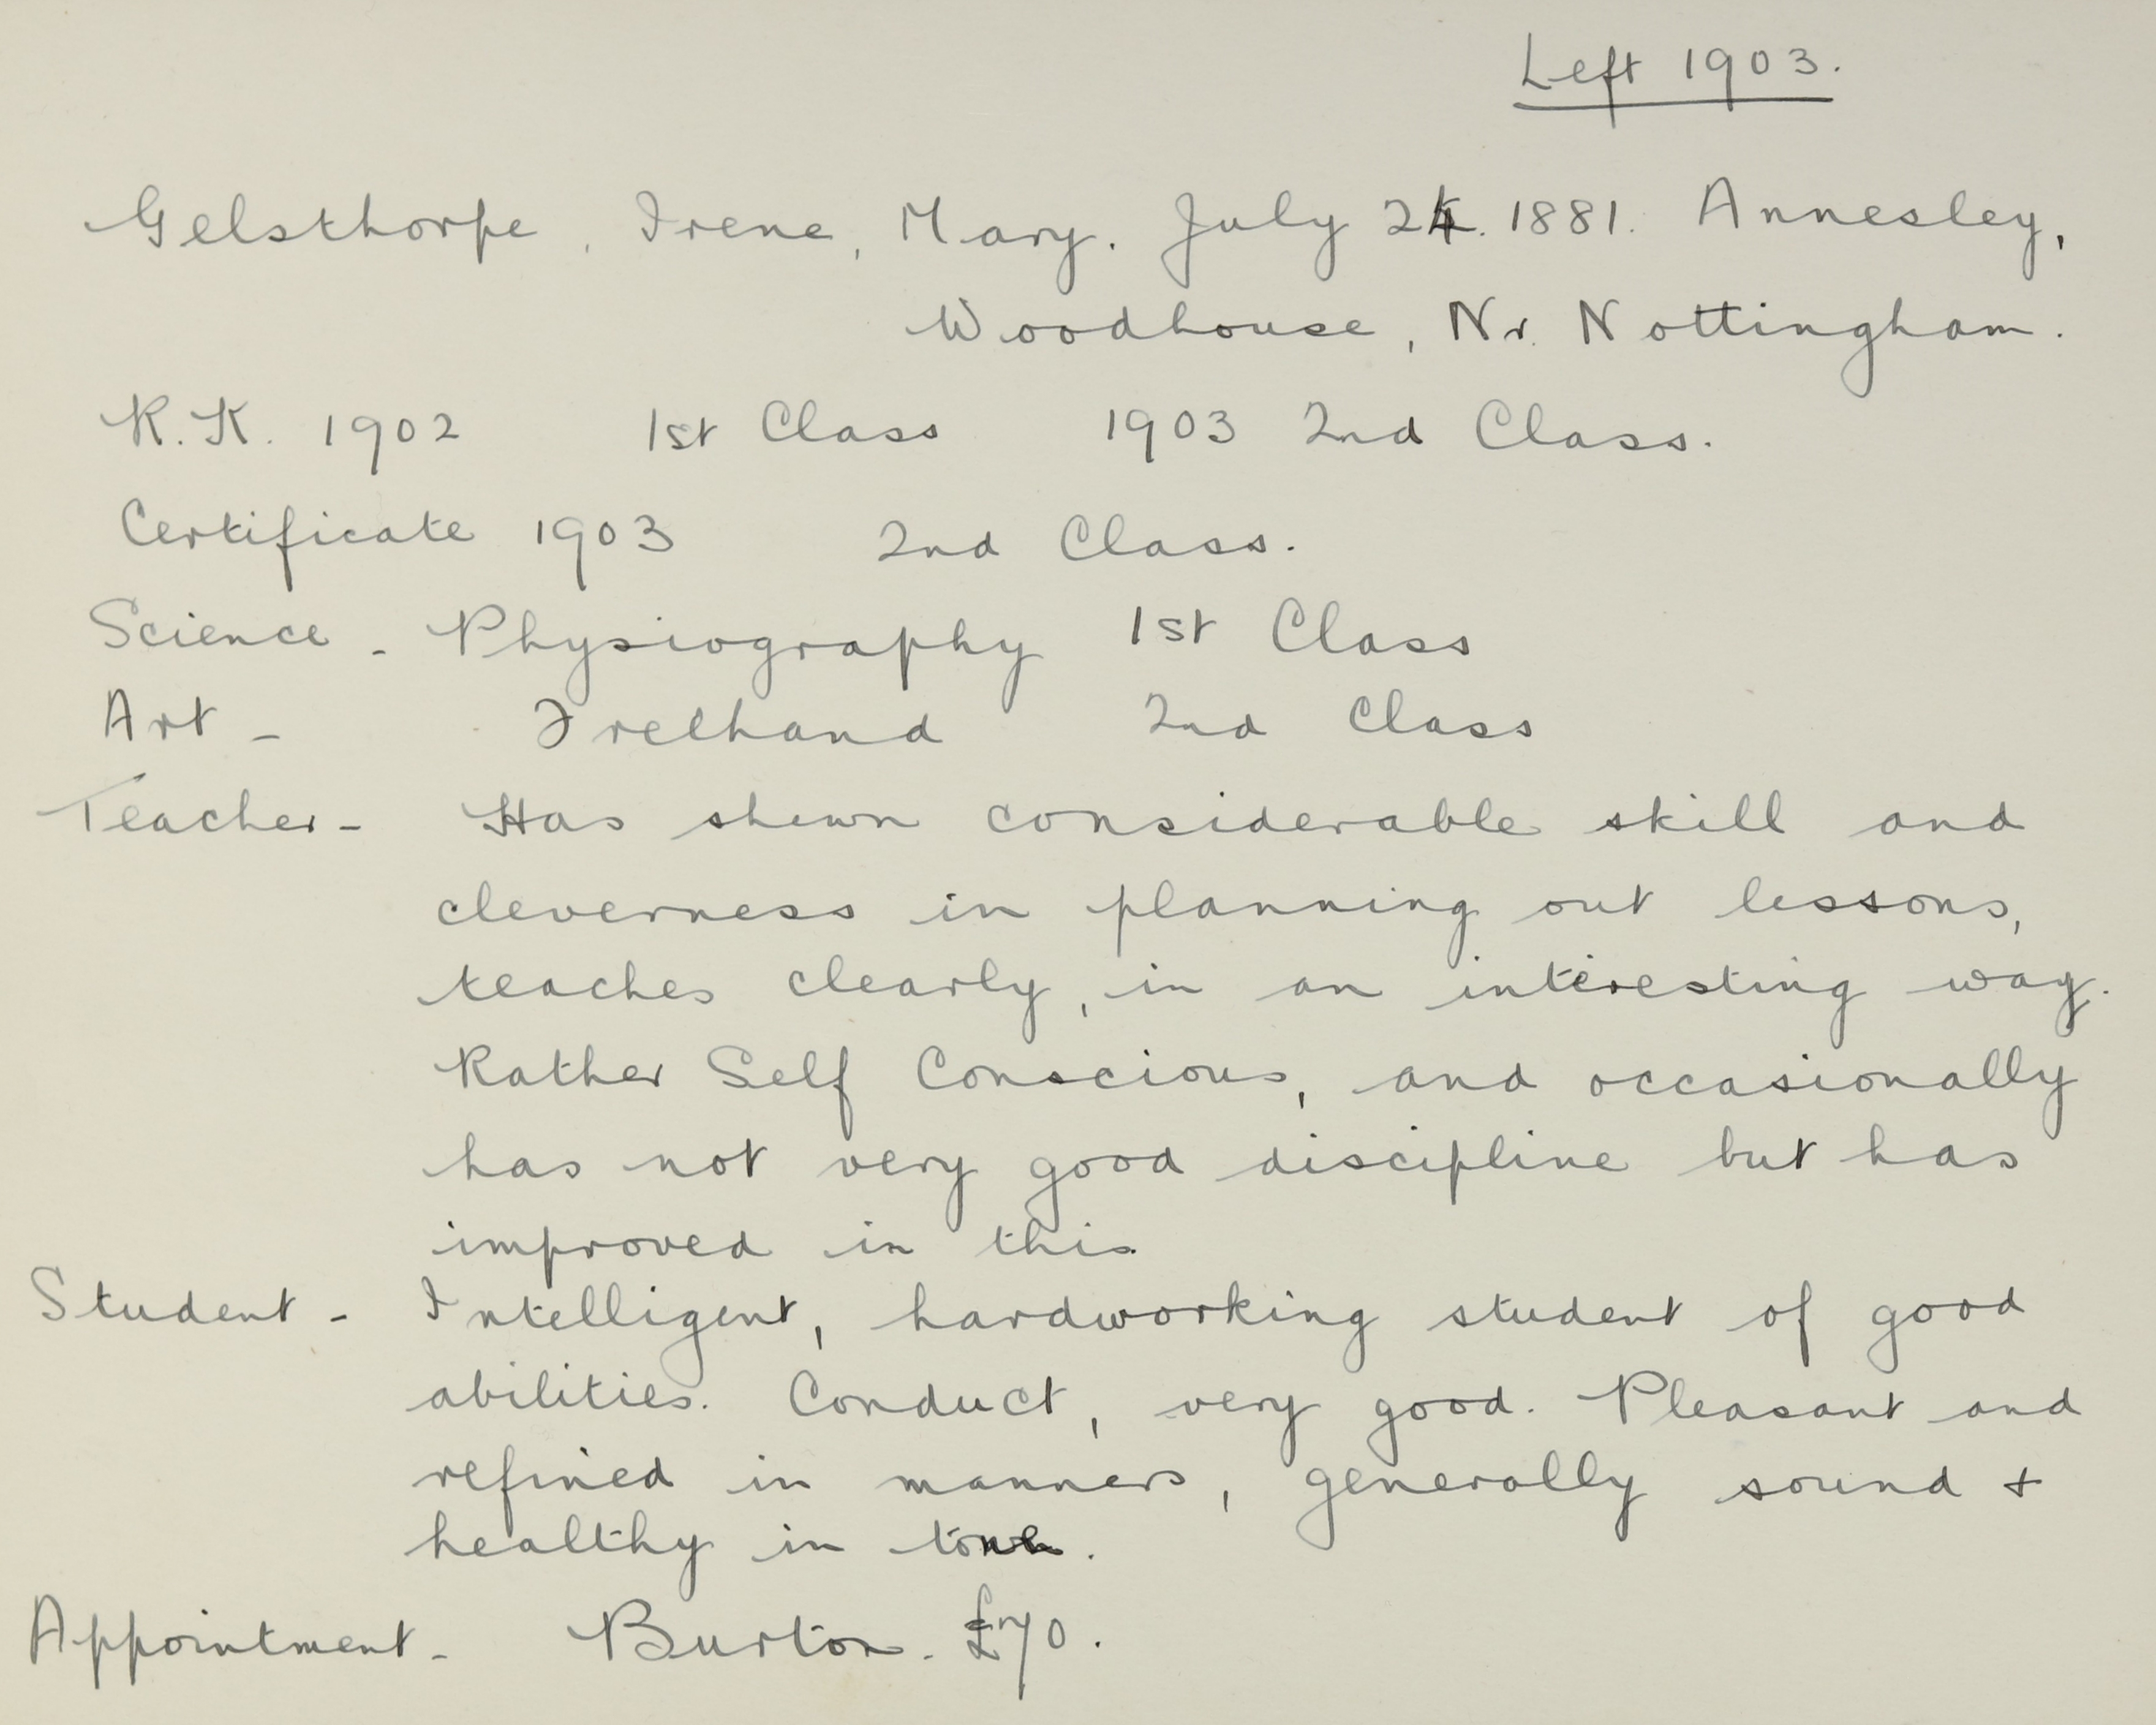 Left 1903.
Gelsthorpe, Irene, Mary. July 24. 1881. Annesley,
Woodhouse, Nr. Nottingham.
R.K. 1902 1st Class 1903 2nd Class.
Certificate 1903 2nd Class.
Science - Physiography 1st Class
Art - Freehand 2nd Class
Teacher - Has shewn considerable skill and
cleverness in planning out lessons,
teaches clearly, in an interesting way.
Rather Self Conscious, and occasionally
has not very good discipline but has
improved in this.
Student - Intelligent, hardworking student of good
abilities. Conduct, very good. Pleasant and
refined in manners, generally sound +
healthy in tone.
Appointment - Burton. £70.